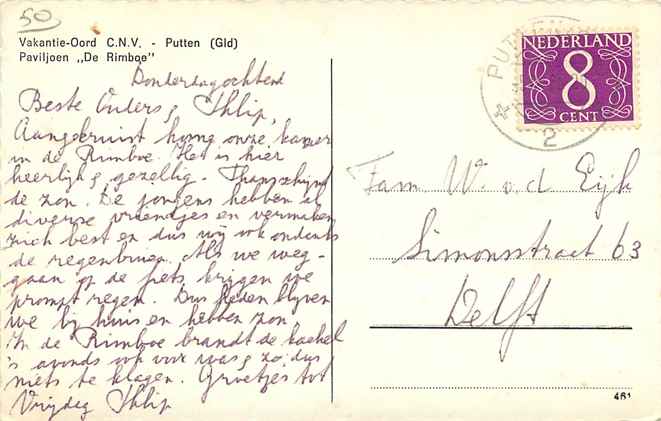 50
Vakantie-Oord C.N.V. - Putten (Gld)
Paviljoen „De Rimboe"
Donderdagochtend
Beste Ouders, &
Aangekruist onze kamer
in de Rimboe. Het is hier
heerlijk & gezellig. Thans schijnt
de zon. De jongens hebben al
diverse vriendjes en vermaken
zich best en dus wij ook ondanks
de regenbuien. Als we weg-
gaan op de fiets krijgen we
prompt regen. Dus heden blijven
we bij huis en hebben zon.
In de Rimboe brandt de kachel
's avonds ook voor was & zo, dus
niets te klagen. Groetjes tot
Vrijdag
PUTTEN
2
NEDERLAND
8
CENT
Fam W. v.d. Eijk
Simonsstraat 63
Delft
461